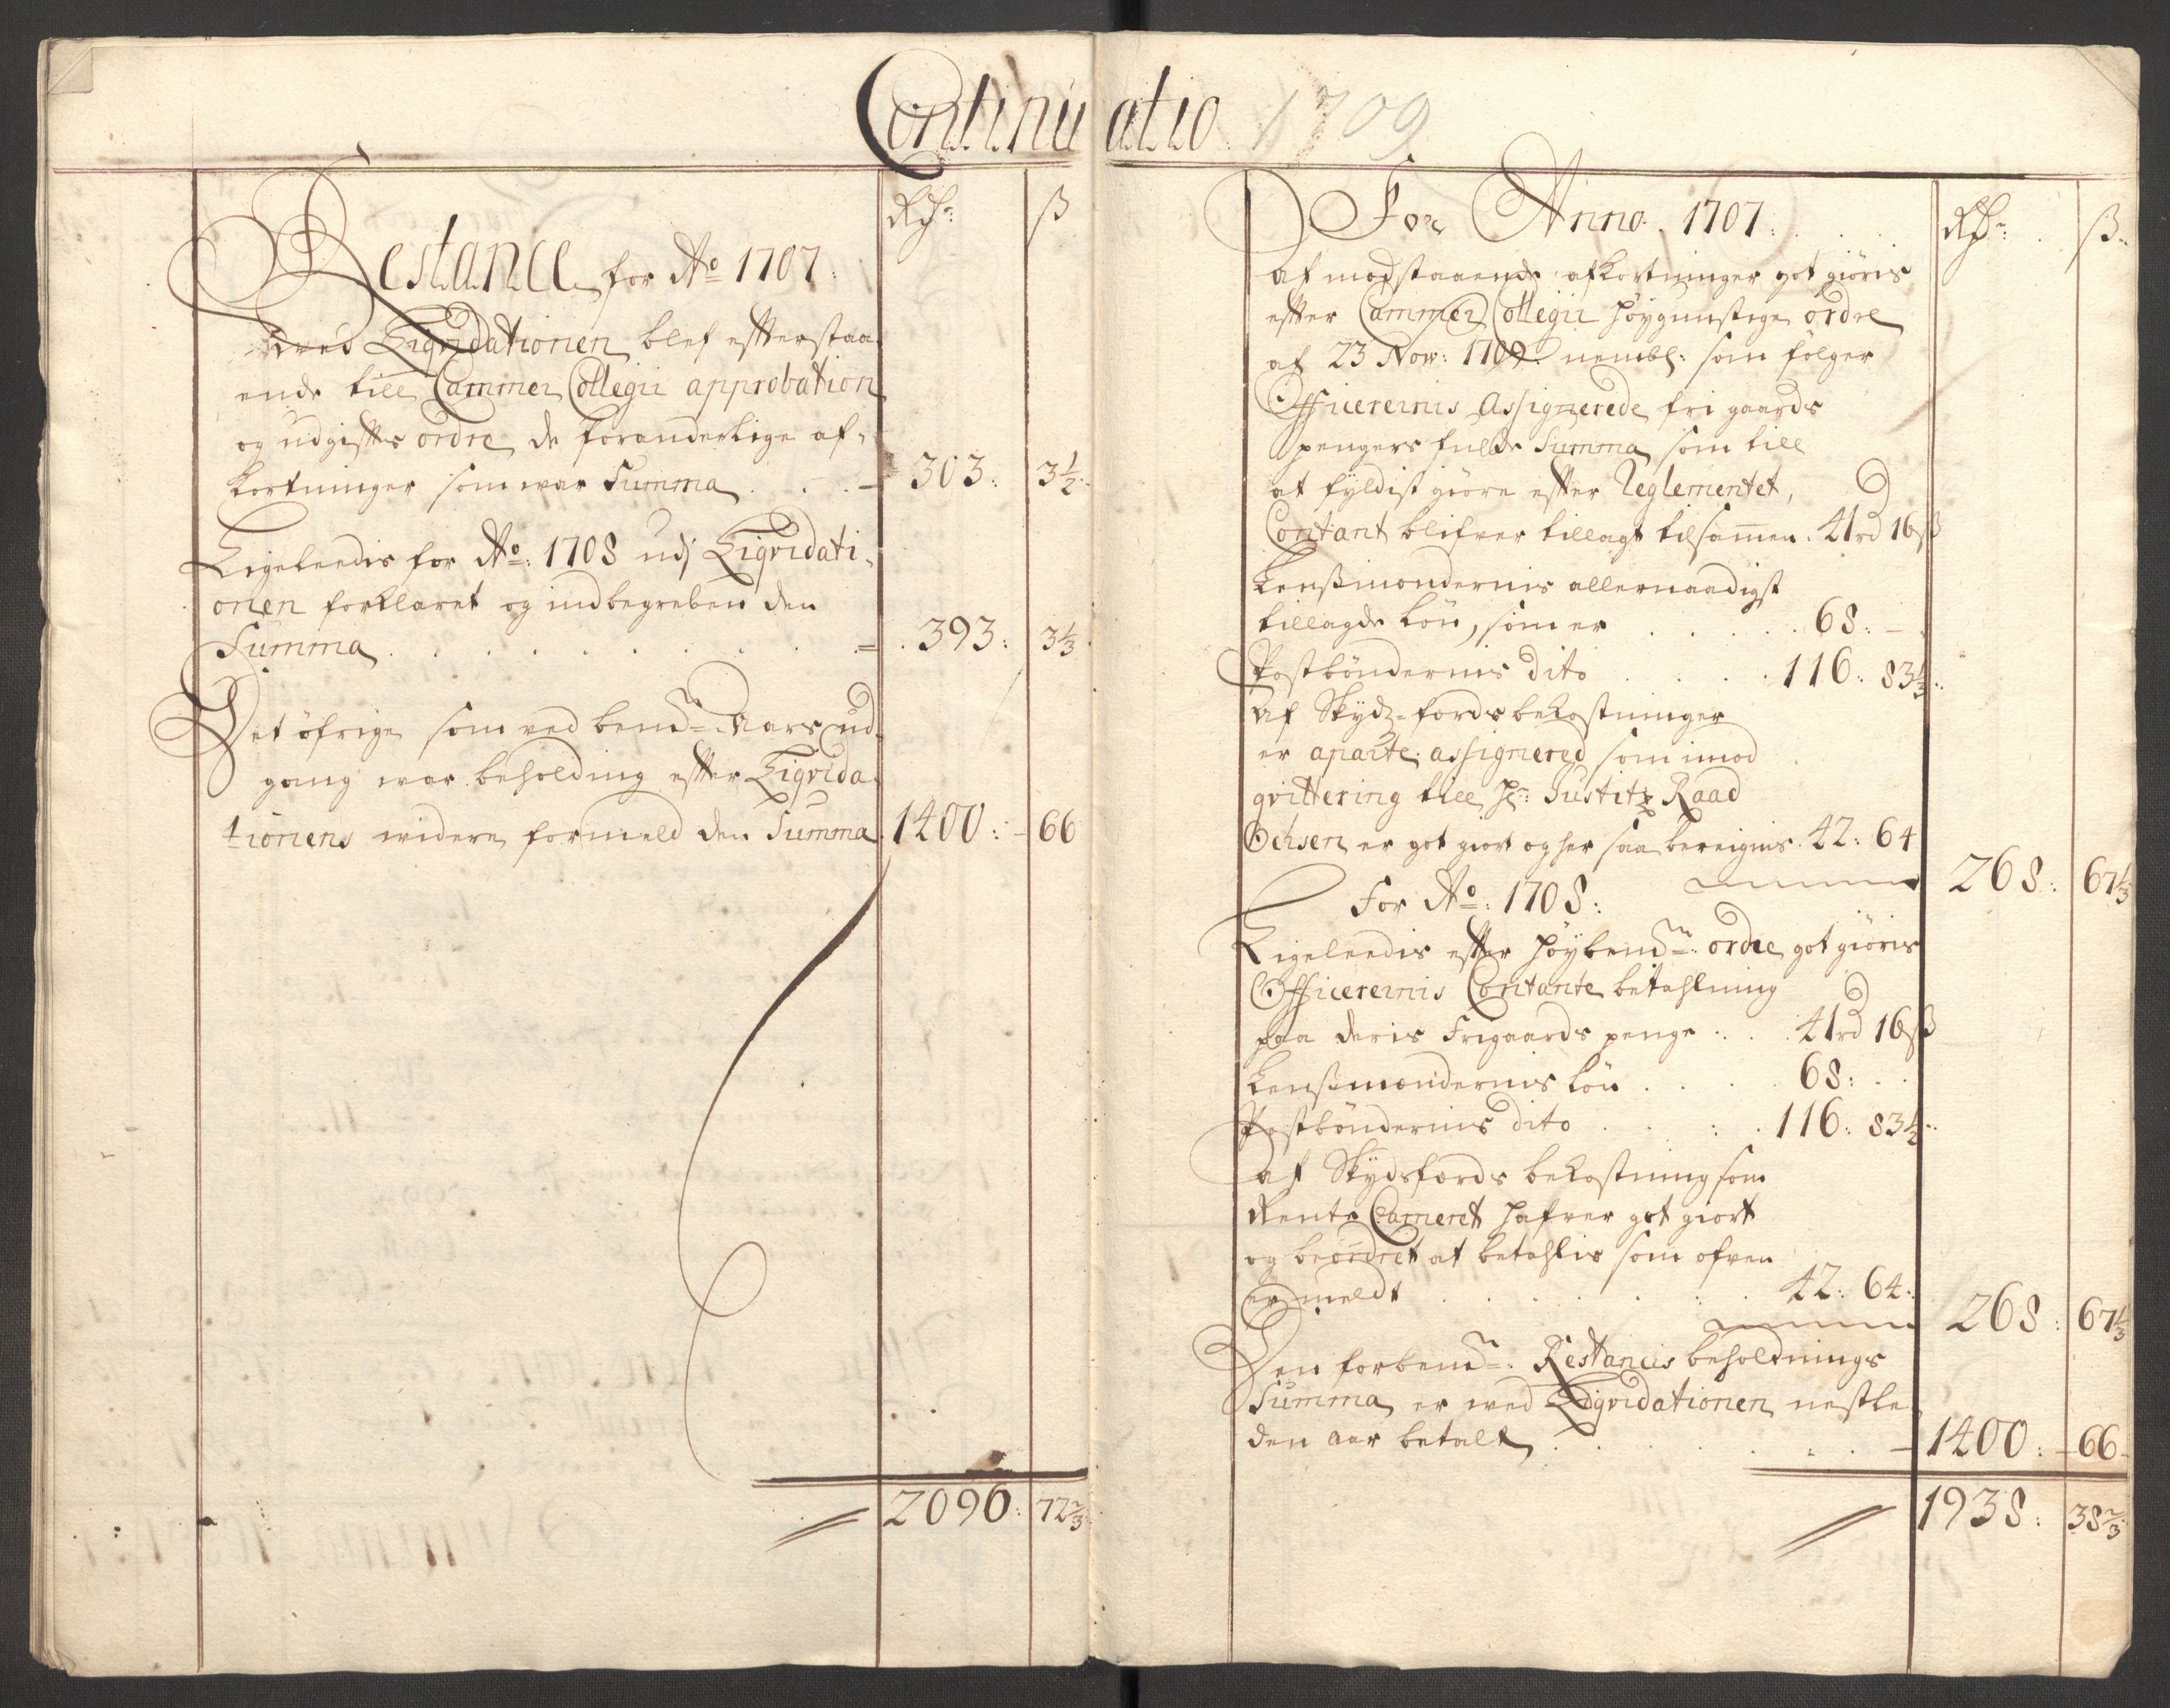 Continuatio 1709
Rdr: ß
Restance for Ao 1707:
wed Liqvidationen blef effterstaa
ende till Cammer Collegii approbation
og udgiffts ordre de foranderlige af-
kortninger som war Summa . . . 303: 3½
Ligeleedis for Ao: 1708 udj Liqvidati-
onen forklaret og indbegreben den
Summa . . . 393: 3⅓
Det öfrige som ved bemte Aars ud-
gang war beholding effter Liqvida-
tionens widere formeld den Summa 1400: 66
2096: 72⅔
For Anno 1707:
Rdr: ß
af modstaaende afkortninger got giöris
effter Cammer Collegii höygunstige ordre
af 23 Nov: 1709. nembl: som fölger
Officerernis Assignerede fri gaards
pengers fulde Summa, som till
at fyldist giöre effter Reglementet,
Contant blifver tillagt tilsamen. 41rd 16ß
Lenßmændernis allernaadigst
tillagde lön, som er . . . 68: -
Postböndernis dito . . . 116: 83⅓
Af Skydz-færds bekostninger
er aparte assignered som imod
qvittering till Hr: Justitz Raad
Ochsen er got giort og her saa bereignis. 42: 64
268: 67⅓
For Ao: 1708:
Ligeleedis effter höybemte: ordre got giöris
Officerernis Contante betahlning
paa deris Frigaards penge . . . 41rd 16ß
Lenßmændernis lön . . . 68: . .
Postböndernis dito . . . 116: 83⅓
af Skydsfærds bekostning som
Rente Cameret hafver got giort
og beordret at betahlis som ofven
er meldt . . . 42: 64:
268: 67⅓
Den forbemte: Restancis beholdnings
Summa, er wed Liqvidationen nestle
den aar betalt . . . 1400: 66
1938: 38⅔